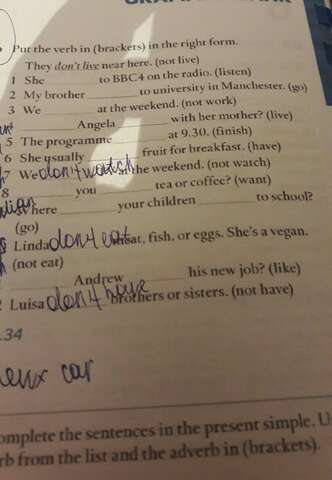 Put the verb in (brackets) in the right form.
They don't live near here. (not live)
1 She ______ to BBC4 on the radio. (listen)
2 My brother ______ to university in Manchester. (go)
3 We ______ at the weekend. (not work)
______ Angela ______ with her mother? (live)
5 The programme ______ at 9.30. (finish)
6 She usually ______ fruit for breakfast. (have)
7 We don't watch the weekend. (not watch)
8 ______ you ______ tea or coffee? (want)
Where ______ your children ______ to school?
(go)
Linda don't eat meat, fish, or eggs. She's a vegan.
(not eat)
______ Andrew ______ his new job? (like)
Luisa don't have brothers or sisters. (not have)
.34
car
omplete the sentences in the present simple. U
rb from the list and the adverb in (brackets).